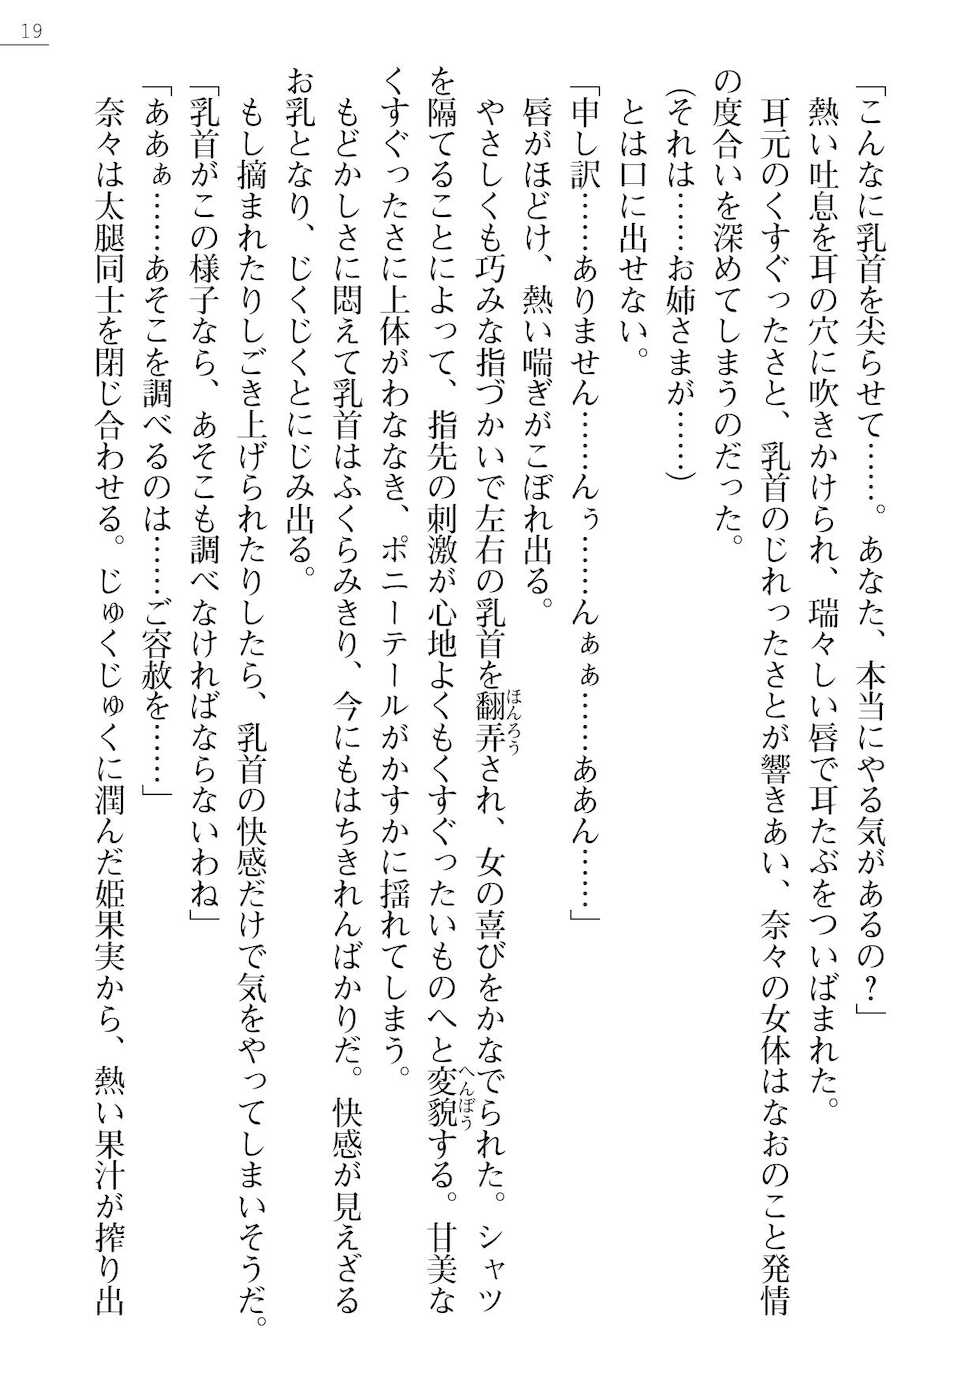 19
「こんなに乳首を尖らせて……。あなた、本当にやる気があるの？」
熱い吐息を耳の穴に吹きかけられ、瑞々しい唇で耳たぶをついばまれた。
耳元のくすぐったさと、乳首のじれったさとが響きあい、奈々の女体はなおのこと発情
の度合いを深めてしまうのだった。
（それは……お姉さまが……）
とは口に出せない。
「申し訳……ありません……んぅ……んぁぁ……ああん……」
唇がほどけ、熱い喘ぎがこぼれ出る。
やさしくも巧みな指づかいで左右の乳首を翻弄され、女の喜びをかなでられた。シャツ
ほんろう
を隔てることによって、指先の刺激が心地よくもくすぐったいものへと変貌する。甘美な
へんぼう
くすぐったさに上体がわななき、ポニーテールがかすかに揺れてしまう。
もどかしさに悶えて乳首はふくらみきり、今にもはちきれんばかりだ。快感が見えざる
お乳となり、じくじくとにじみ出る。
もし摘まれたりしごき上げられたりしたら、乳首の快感だけで気をやってしまいそうだ。
「乳首がこの様子なら、あそこも調べなければならないわね」
「ああぁ……あそこを調べるのは……ご容赦を……」
奈々は太腿同士を閉じ合わせる。じゅくじゅくに潤んだ姫果実から、熱い果汁が搾り出